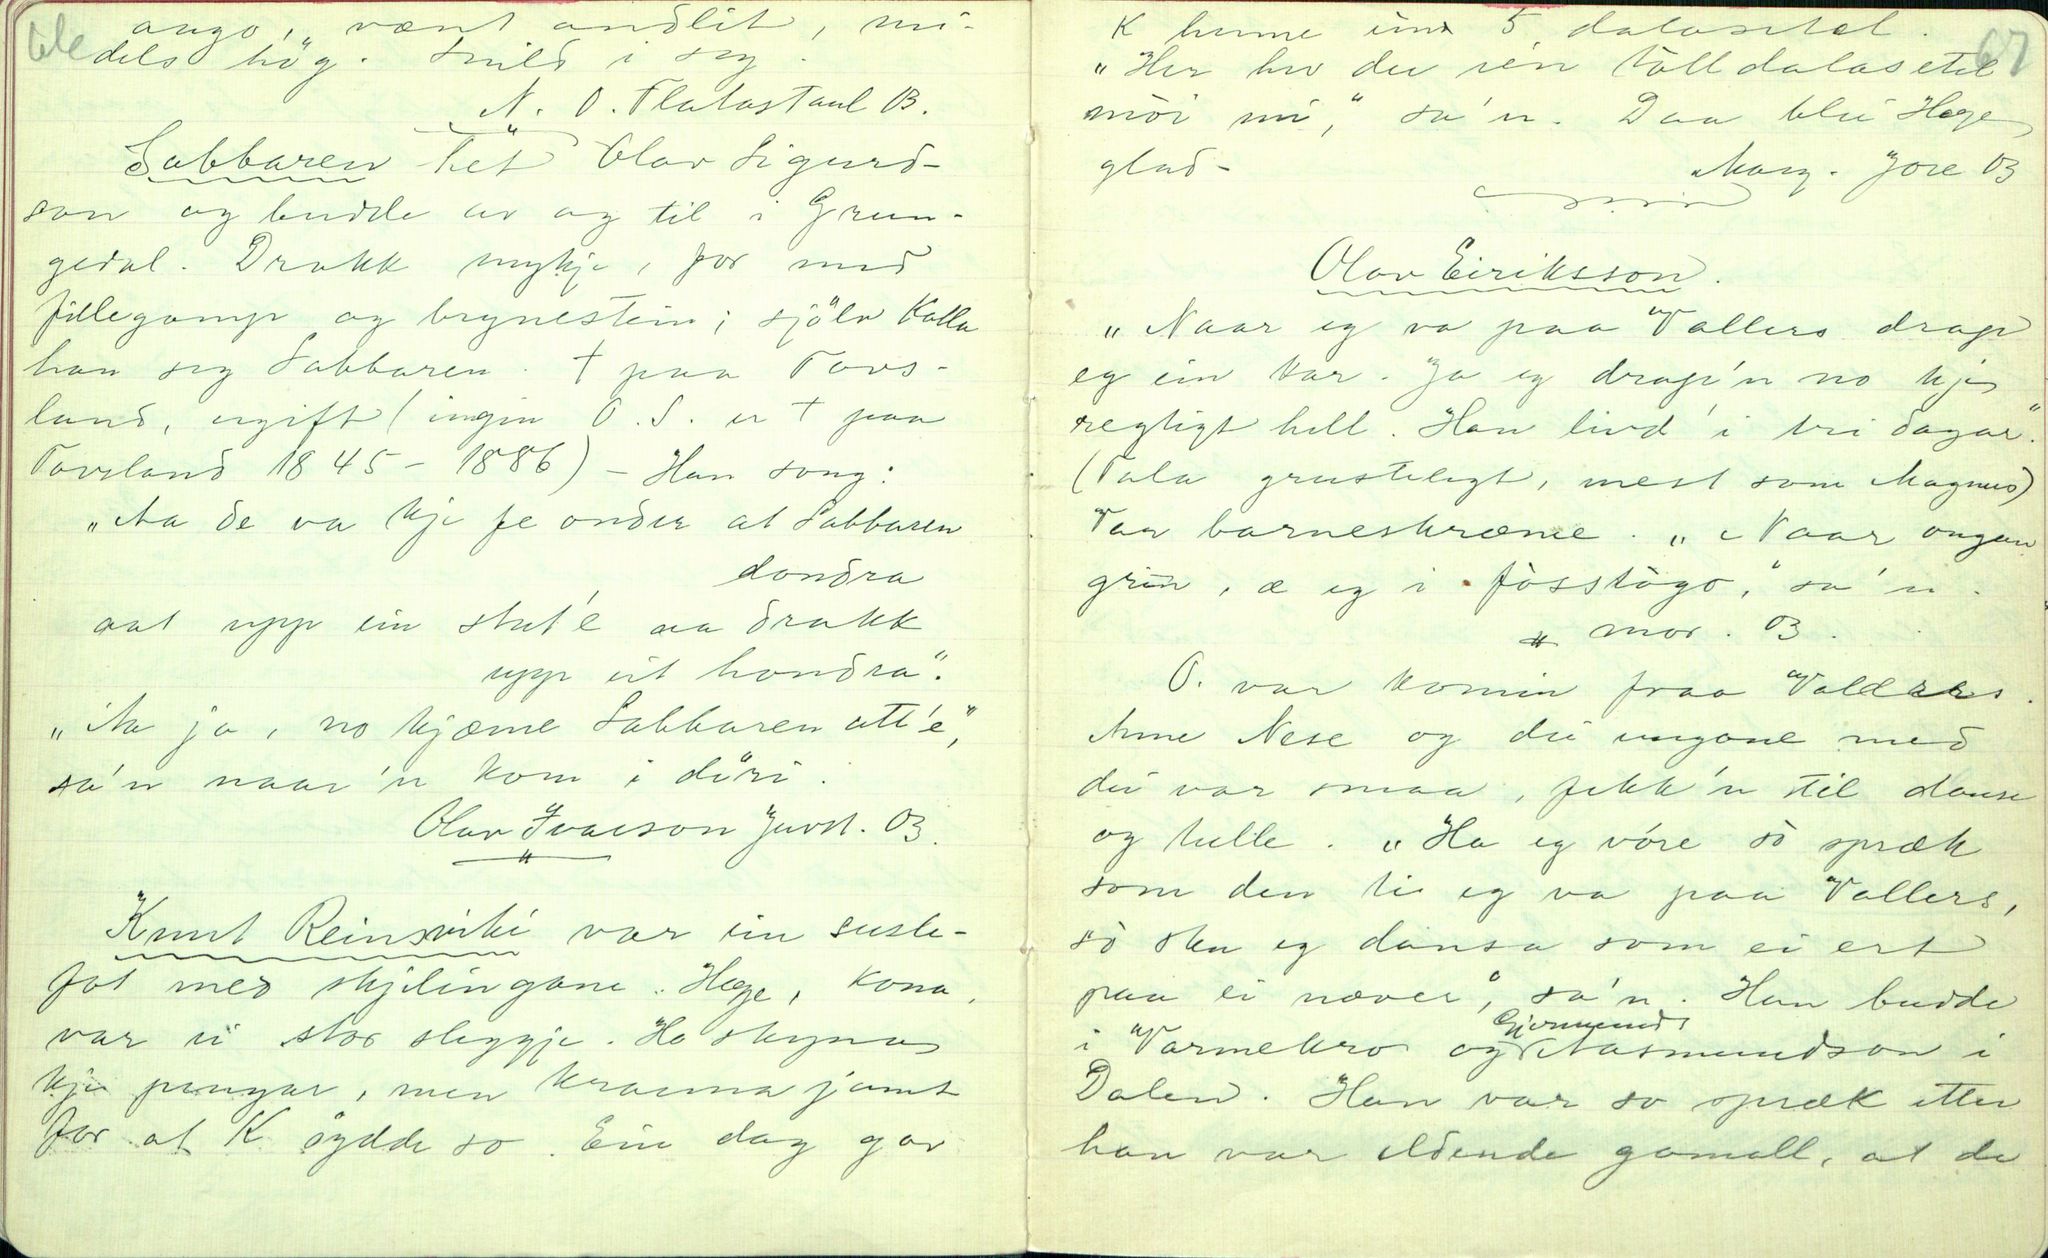 66
augo, vænt andlit, mi-
dels høg. Snild i seg.
N. O. Flatastaul 03.
Sabbaren het Olav Sigurd-
son og budde av og til i Grun-
gedal. Drakk mykje, for med
fillegamp og brynestein; sjölv kalla
han seg Sabbaren. † paa Tovs-
land, ugift (ingin O. S. er † paa
Tovsland 1845 - 1886) - Han song:
„Aa de va kje fe onder at Sabbaren
dondra
aat upp ein stut'e aa drakk
upp eit hondra".
„Aa ja, no kjæme Sabbaren att'e",
sa'n naar'n kom i döri.
Olav Ivarson Juvst. 03.
Knut Reinsviki var ein susle-
fot med skjilingane. Hæge, kona,
var ei stor sleggje. Ho skyna
kje pengar, men krauna jamt
for at K öydde so. Ein dag gav
67
K henne ein 5 dalarsetel.
„Her he du ein tolldalasetel
möi mi," sa'n. Daa blei Hæge
glad-
Marg. Jore 03
Olav Eiriksson.
„Naar eg va paa Vallers drap
eg ein kar. Ja eg drap'n no kje
regtigt hell. Han livd' i tri dagar."
(Tala grusteligt, mest som Magnus)
Var barneskræme. „Naar ongan
grin, æ eg i fosstögo," sa'n.
mor. 03.
O. var komin fraa Valdres.
Anne Nese og dei ungane med
dei var smaa, fekk'n til danse
og tulle. „Ha eg vóre so spræk
som den ti eg va paa Vallers,
so ska eg dansa som ei ert
paa ei næver", sa'n. Han budde
i Varmekro og Gjermund Aasmundson i
Dalen. Han var so spræk etter
han var eldende gamall, at de